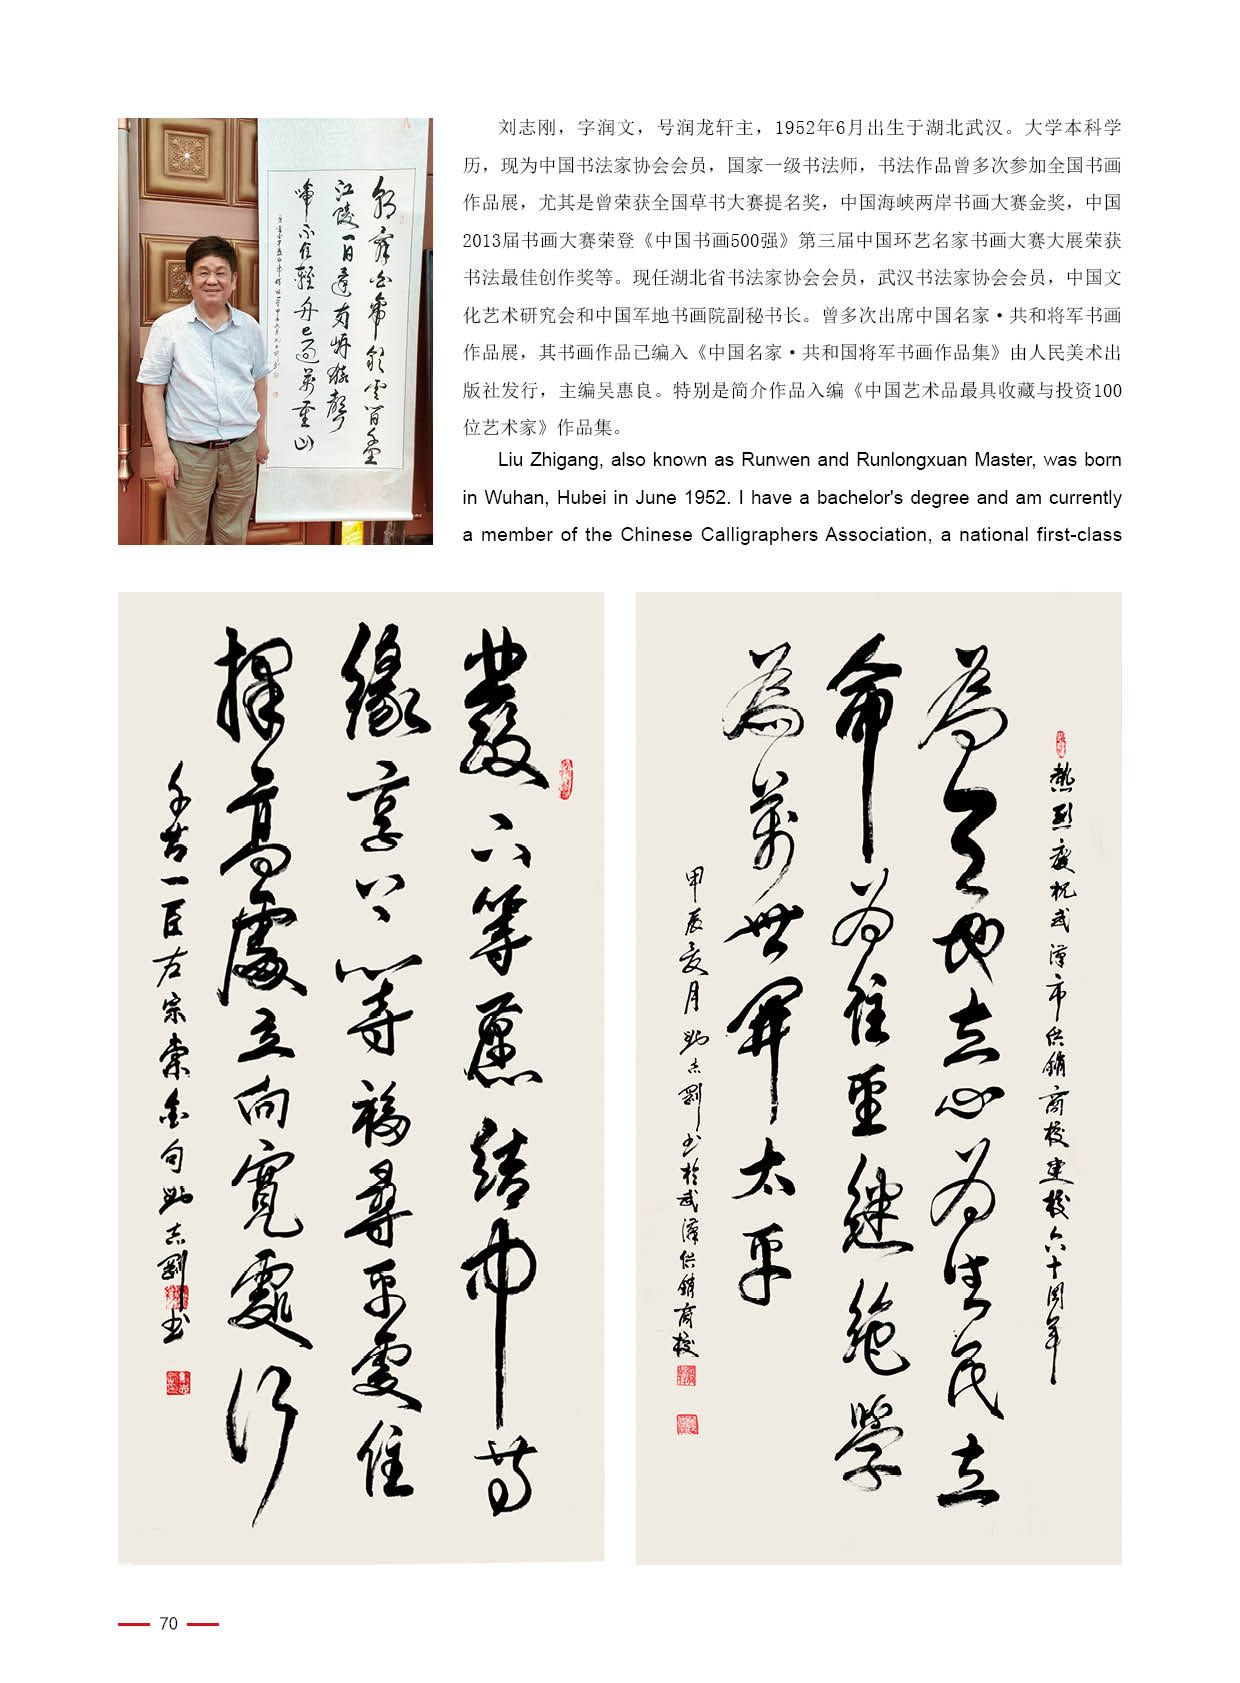 刘志刚，字润文，号润龙轩主，1952年6月出生于湖北武汉。大学本科学
历，现为中国书法家协会会员，国家一级书法师，书法作品曾多次参加全国书画
作品展，尤其是曾荣获全国草书大赛提名奖，中国海峡两岸书画大赛金奖，中国
2013届书画大赛荣登《中国书画500强》第三届中国环艺名家书画大赛大展荣获
书法最佳创作奖等。现任湖北省书法家协会会员，武汉书法家协会会员，中国文
化艺术研究会和中国军地书画院副秘书长。曾多次出席中国名家·共和将军书画
作品展，其书画作品己编入《中国名家·共和国将军书画作品集》由人民美术出
版社发行，主编吴惠良。特别是简介作品入编《中国艺术品最具收藏与投资100
位艺术家》作品集。
Liu Zhigang, also known as Runwen and Runlongxuan Master, was born
in Wuhan, Hubei in June 1952. I have a bachelor's degree and am currently
a member of the Chinese Calligraphers Association, a national first-class
朝辞白帝彩云间千里
江陵一日還两岸猿聲
啼不住輕舟已過萬重山
發上等愿結中等
緣享下等福尋平處住
擇高處立向寬處行
千古一臣左宗棠金句劉志剛书
熱烈慶祝武漢市供銷商校建校六十周年
為天地立心為生民立
命為往聖繼絶學
為萬世開太平
甲辰夏月劉志剛书於武漢供銷商校
70